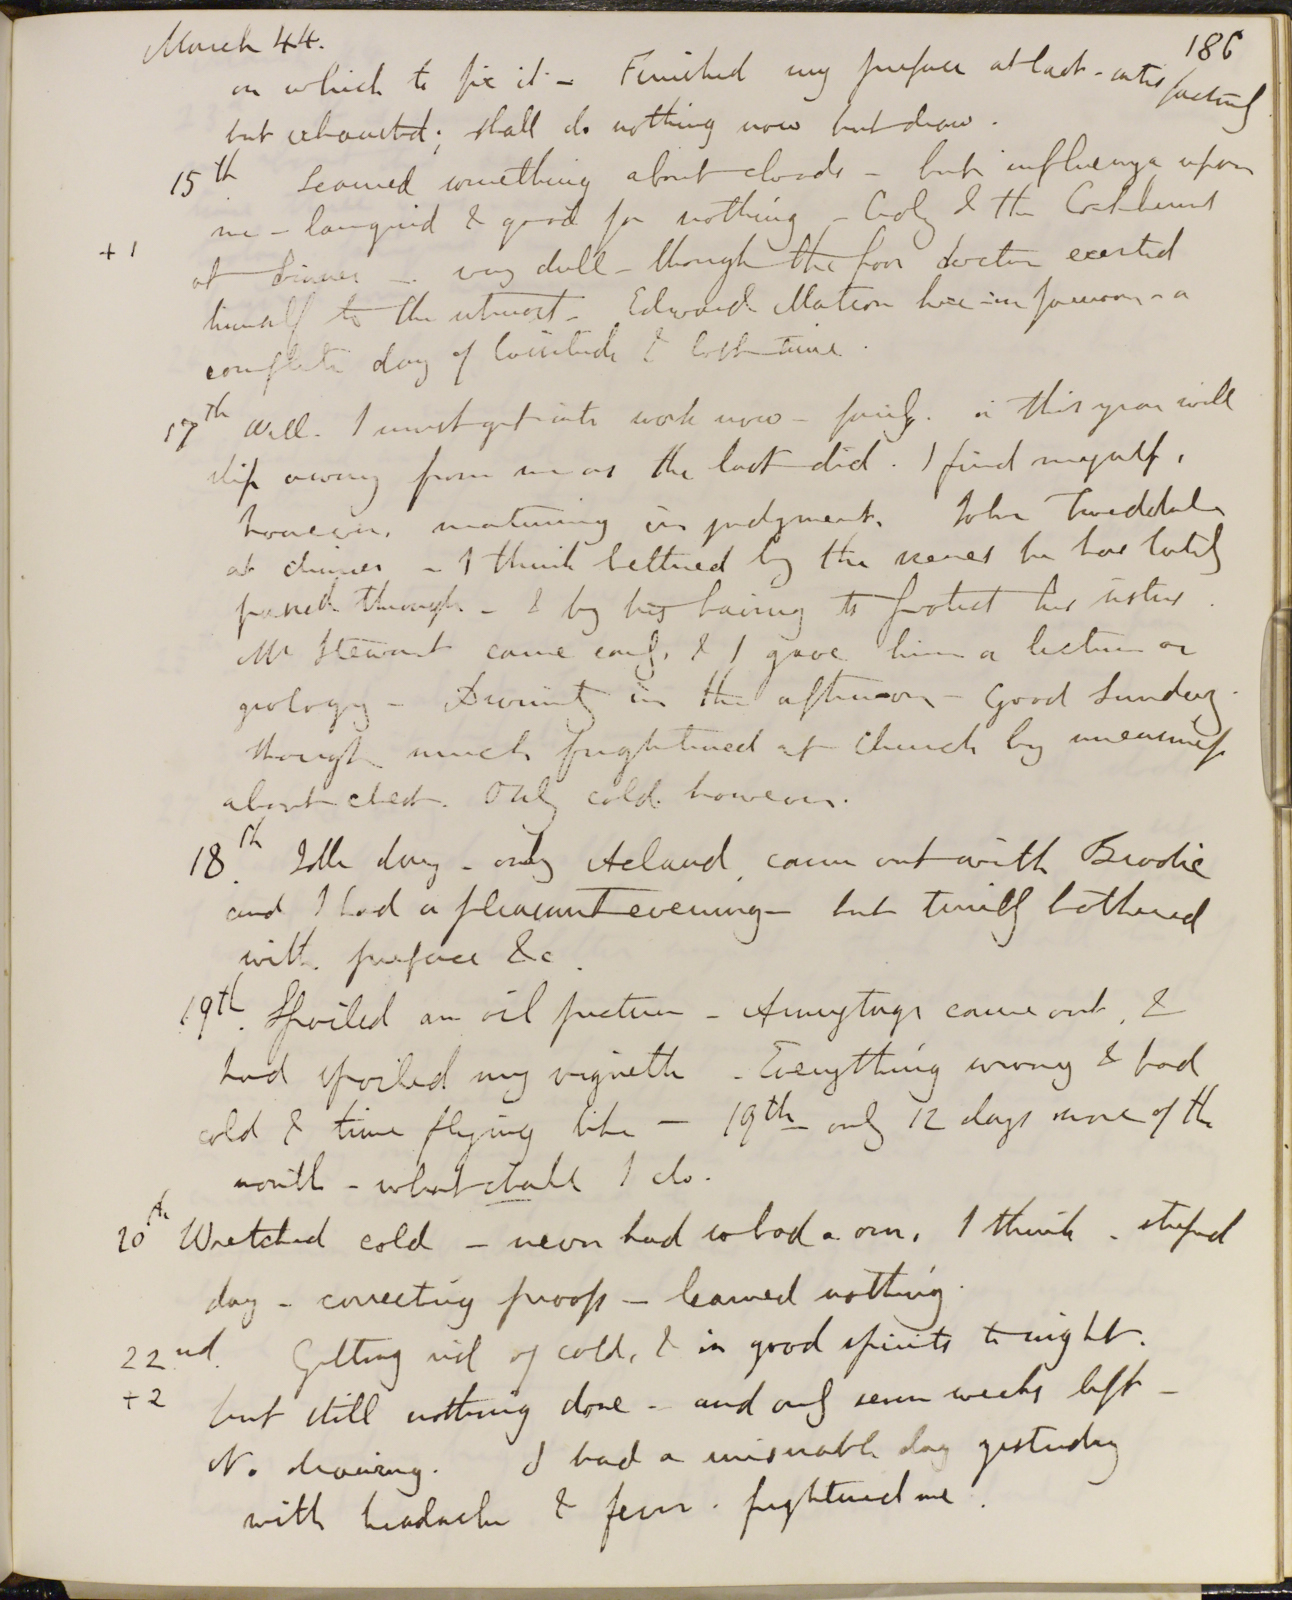 March 44.
186
on which to fix it - Finished my preface at last - satisfactorily
but exhausted; shall do nothing now but draw.
15th Learned something about clouds - but influenza upon
me - languid & good for nothing - Croly & the Cockburns
+ 1
at dinner - very dull - though the poor doctor exerted
himself to the utmost - Edward Matson here in forenoon - a
complete day of lassitude & lost time.
17th Well. I must get into work now - fairly. or this year will
slip away from me as the last did. I find myself,
however, maturing in judgment. John Tweddale
at dinner - I think bettered by the scenes he has lately
passed through - & by his having to protect his sisters.
Mr Stewart came early, & I gave him a lecture on
geology - Divinity in the afternoon - Good Sunday.
though much frightened at church by uneasiness
about chest. Only cold however.
18th Idle day - only Acland came out with Brodie
and I had a pleasant evening - but terribly bothered
with preface &c.
19th. Spoiled an oil picture - Armytage came out, &
had spoiled my vignette - Everything wrong & bad
cold & time flying like - 19th - only 12 days more of the
month - what shall I do.
20th Wretched cold - never had so bad a one, I think - stupid
day - correcting proofs - learned nothing.
22nd. Getting rid of cold, & in good spirits to night.
+ 2
but still nothing done - and only seven weeks left -
No drawing. I had a miserable day yesterday
with headache & fever. frightened me.